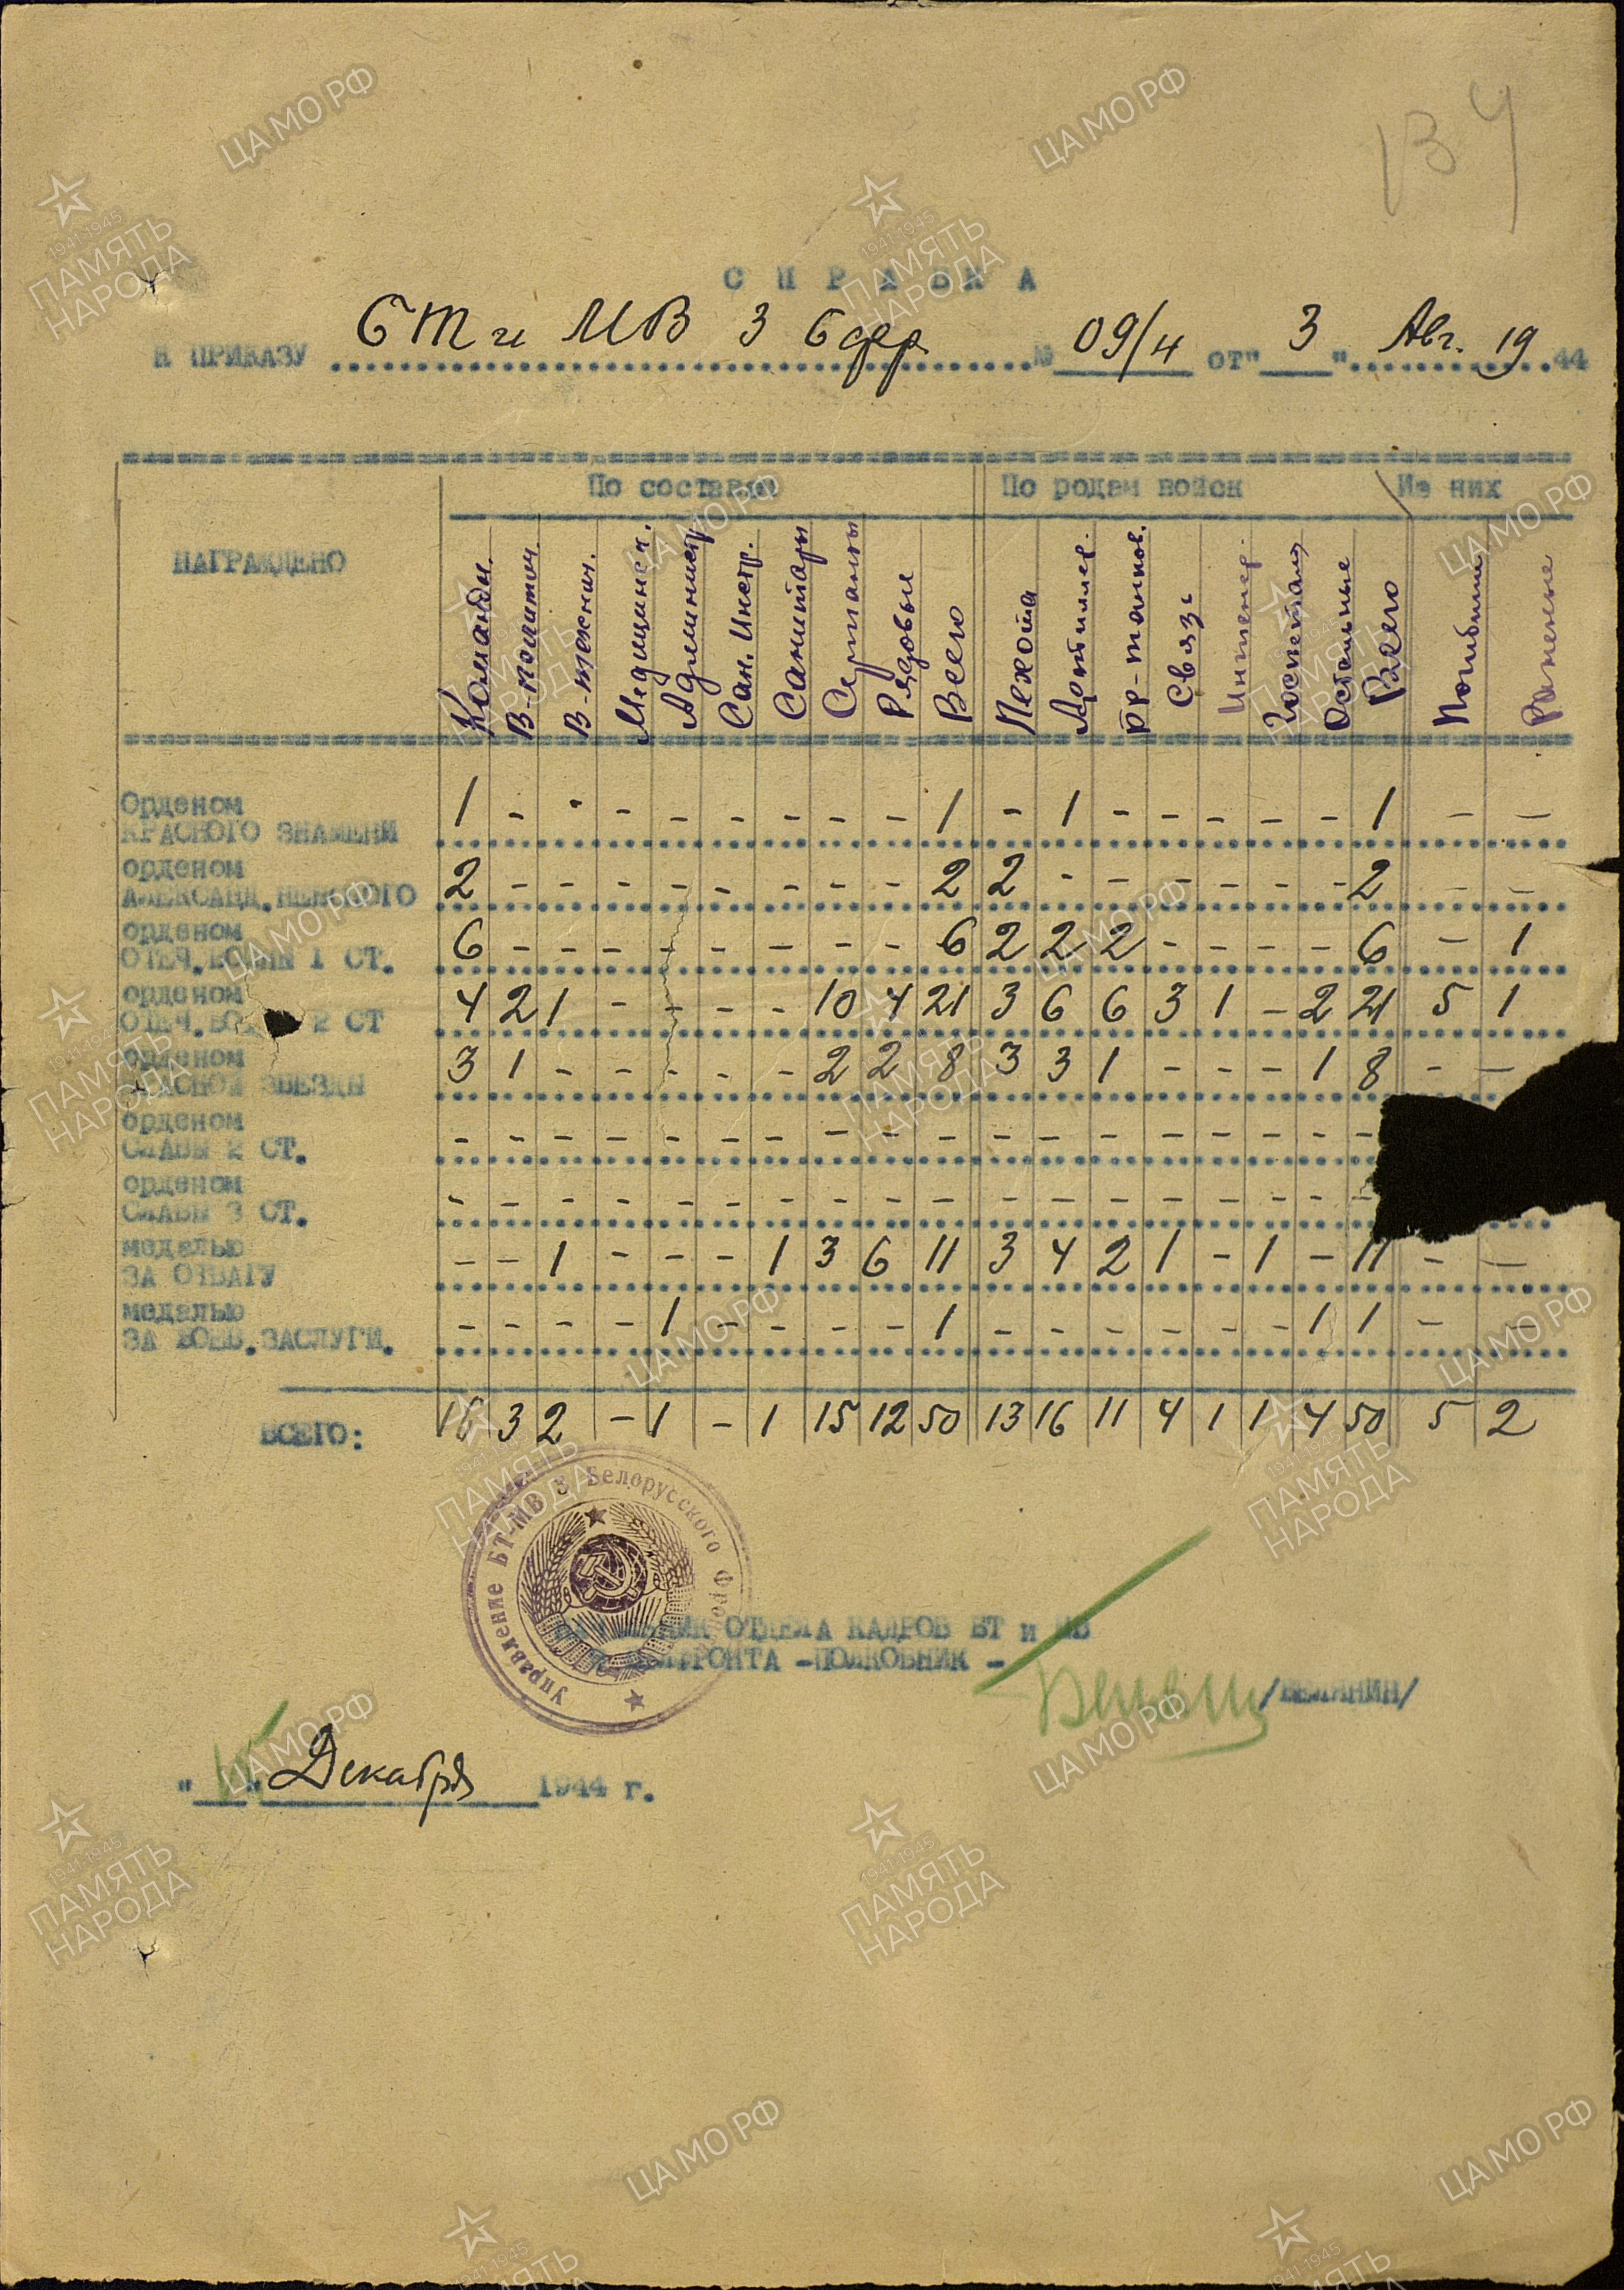 134
СПРАВКА
К ПРИКАЗУ БТ и МВ 3 Бфр № 09/н от "3" Авг. 1944
НАГРАЖДЕНО По составу По родам войск Из них
Командн. В-политич. В-технич. Медицинск. Администр. Сан. Инстр. Санитары Сержанты Рядовые Всего Пехота Артиллер. бр-танков. Связь Инженер. Госпиталя Остальные Всего Погибшие Раненые
Орденом
КРАСНОГО ЗНАМЕНИ 1 - - - - - - - - 1 - 1 - - - - - 1 - -
орденом
АЛЕКСАНД.НЕВСКОГО 2 - - - - - - - - 2 2 - - - - - - 2 - -
орденом
ОТЕЧ.ВОЙНЫ 1 СТ. 6 - - - - - - - - 6 2 2 2 - - - - 6 - 1
орденом
ОТЕЧ.ВОЙНЫ 2 СТ 4 2 1 - - - - 10 4 21 3 6 6 3 1 - 2 21 5 1
орденом
КРАСНОЙ ЗВЕЗДЫ 3 1 - - - - - 2 2 8 3 3 1 - - - 1 8 - -
орденом
СЛАВЫ 2 СТ. - - - - - - - - - - - - - - - - - -
орденом
СЛАВЫ 3 СТ. - - - - - - - - - - - - - - - - - -
медалью
ЗА ОТВАГУ - - 1 - - - 1 3 6 11 3 4 2 1 - 1 - 11 - -
медалью
ЗА БОЕВ.ЗАСЛУГИ. - - - - 1 - - - - 1 - - - - - - 1 1 - -
ВСЕГО: 16 3 2 - 1 - 1 15 12 50 13 16 11 4 1 1 4 50 5 2
Управление БТ-МВ 3 Белорусского Фро
НАЧАЛЬНИК ОТДЕЛА КАДРОВ БТ и МВ
БЕЛФРОНТА -ПОЛКОВНИК -
/БЕЛЯНИН/
" " Декабря 1944 г.
ЦАМО РФ
1941-1945
ПАМЯТЬ
НАРОДА